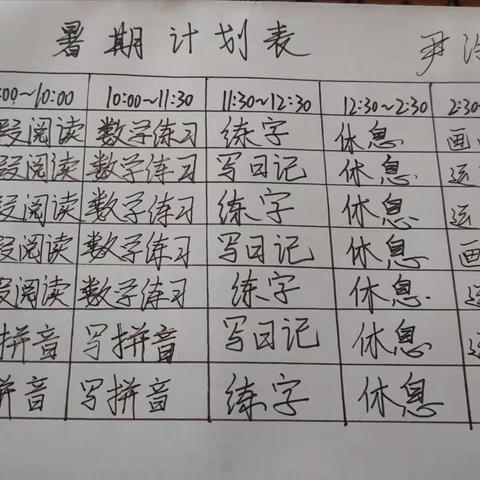 暑期计划表 尹
:00~10:00 10:00~11:30 11:30~12:30 12:30~2:30 2:30
阅读 数学练习 练字 休息 画
阅读 数学练习 写日记 休息 运
阅读 数学练习 练字 休息 运
阅读 数学练习 写日记 休息 画
阅读 数学练习 练字 休息 运
拼音 写拼音 写日记 休息 运
拼音 写拼音 练字 休息